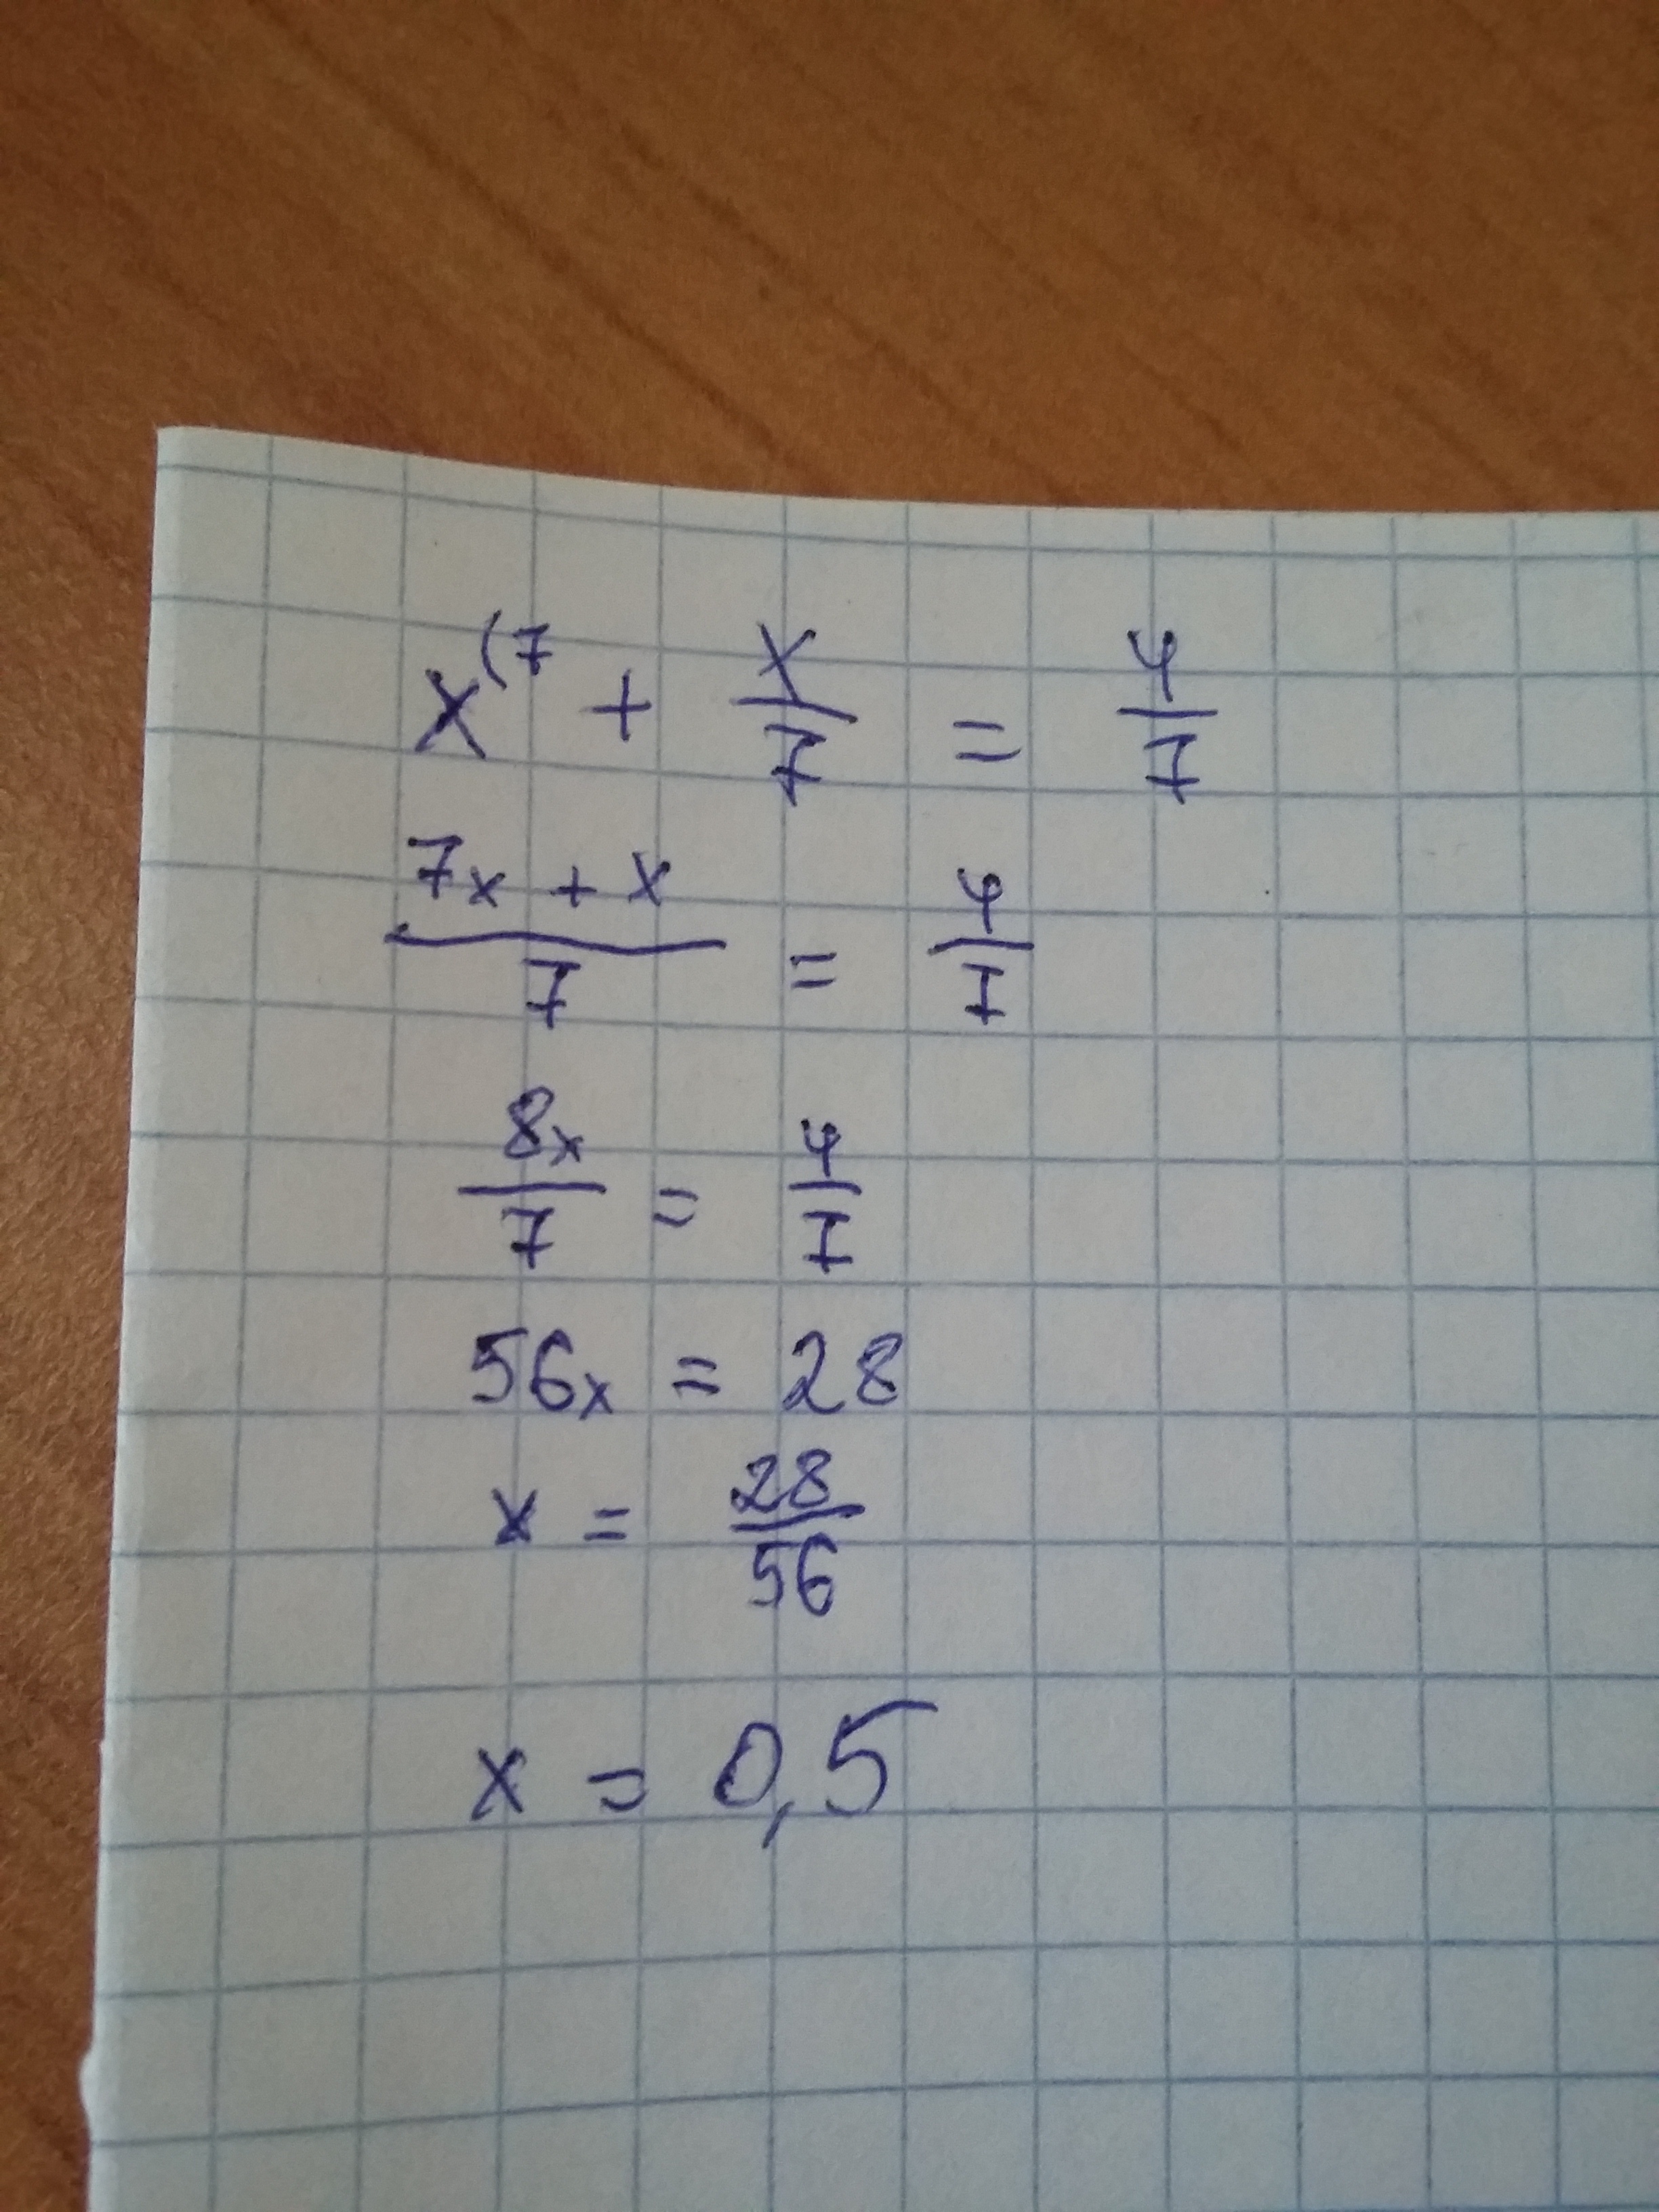 x⁽⁷ + x/7 = 4/7
7x + x / 7 = 4/7
8x/7 = 4/7
56x = 28
x = 28/56
x = 0,5